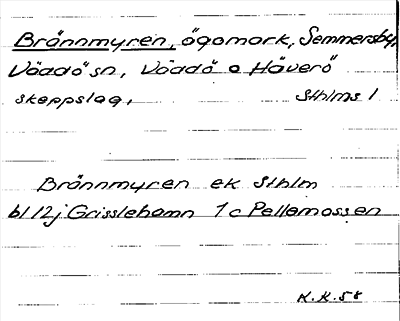 Brännmyren, ägomark, Semmersby,
Väddö sn, Väddö o Häverö
skeppslag, Sthlms l
Brännmyren ek Sthlm
bl 12j Grisslehamn 1c Pellemossen
K.K.58